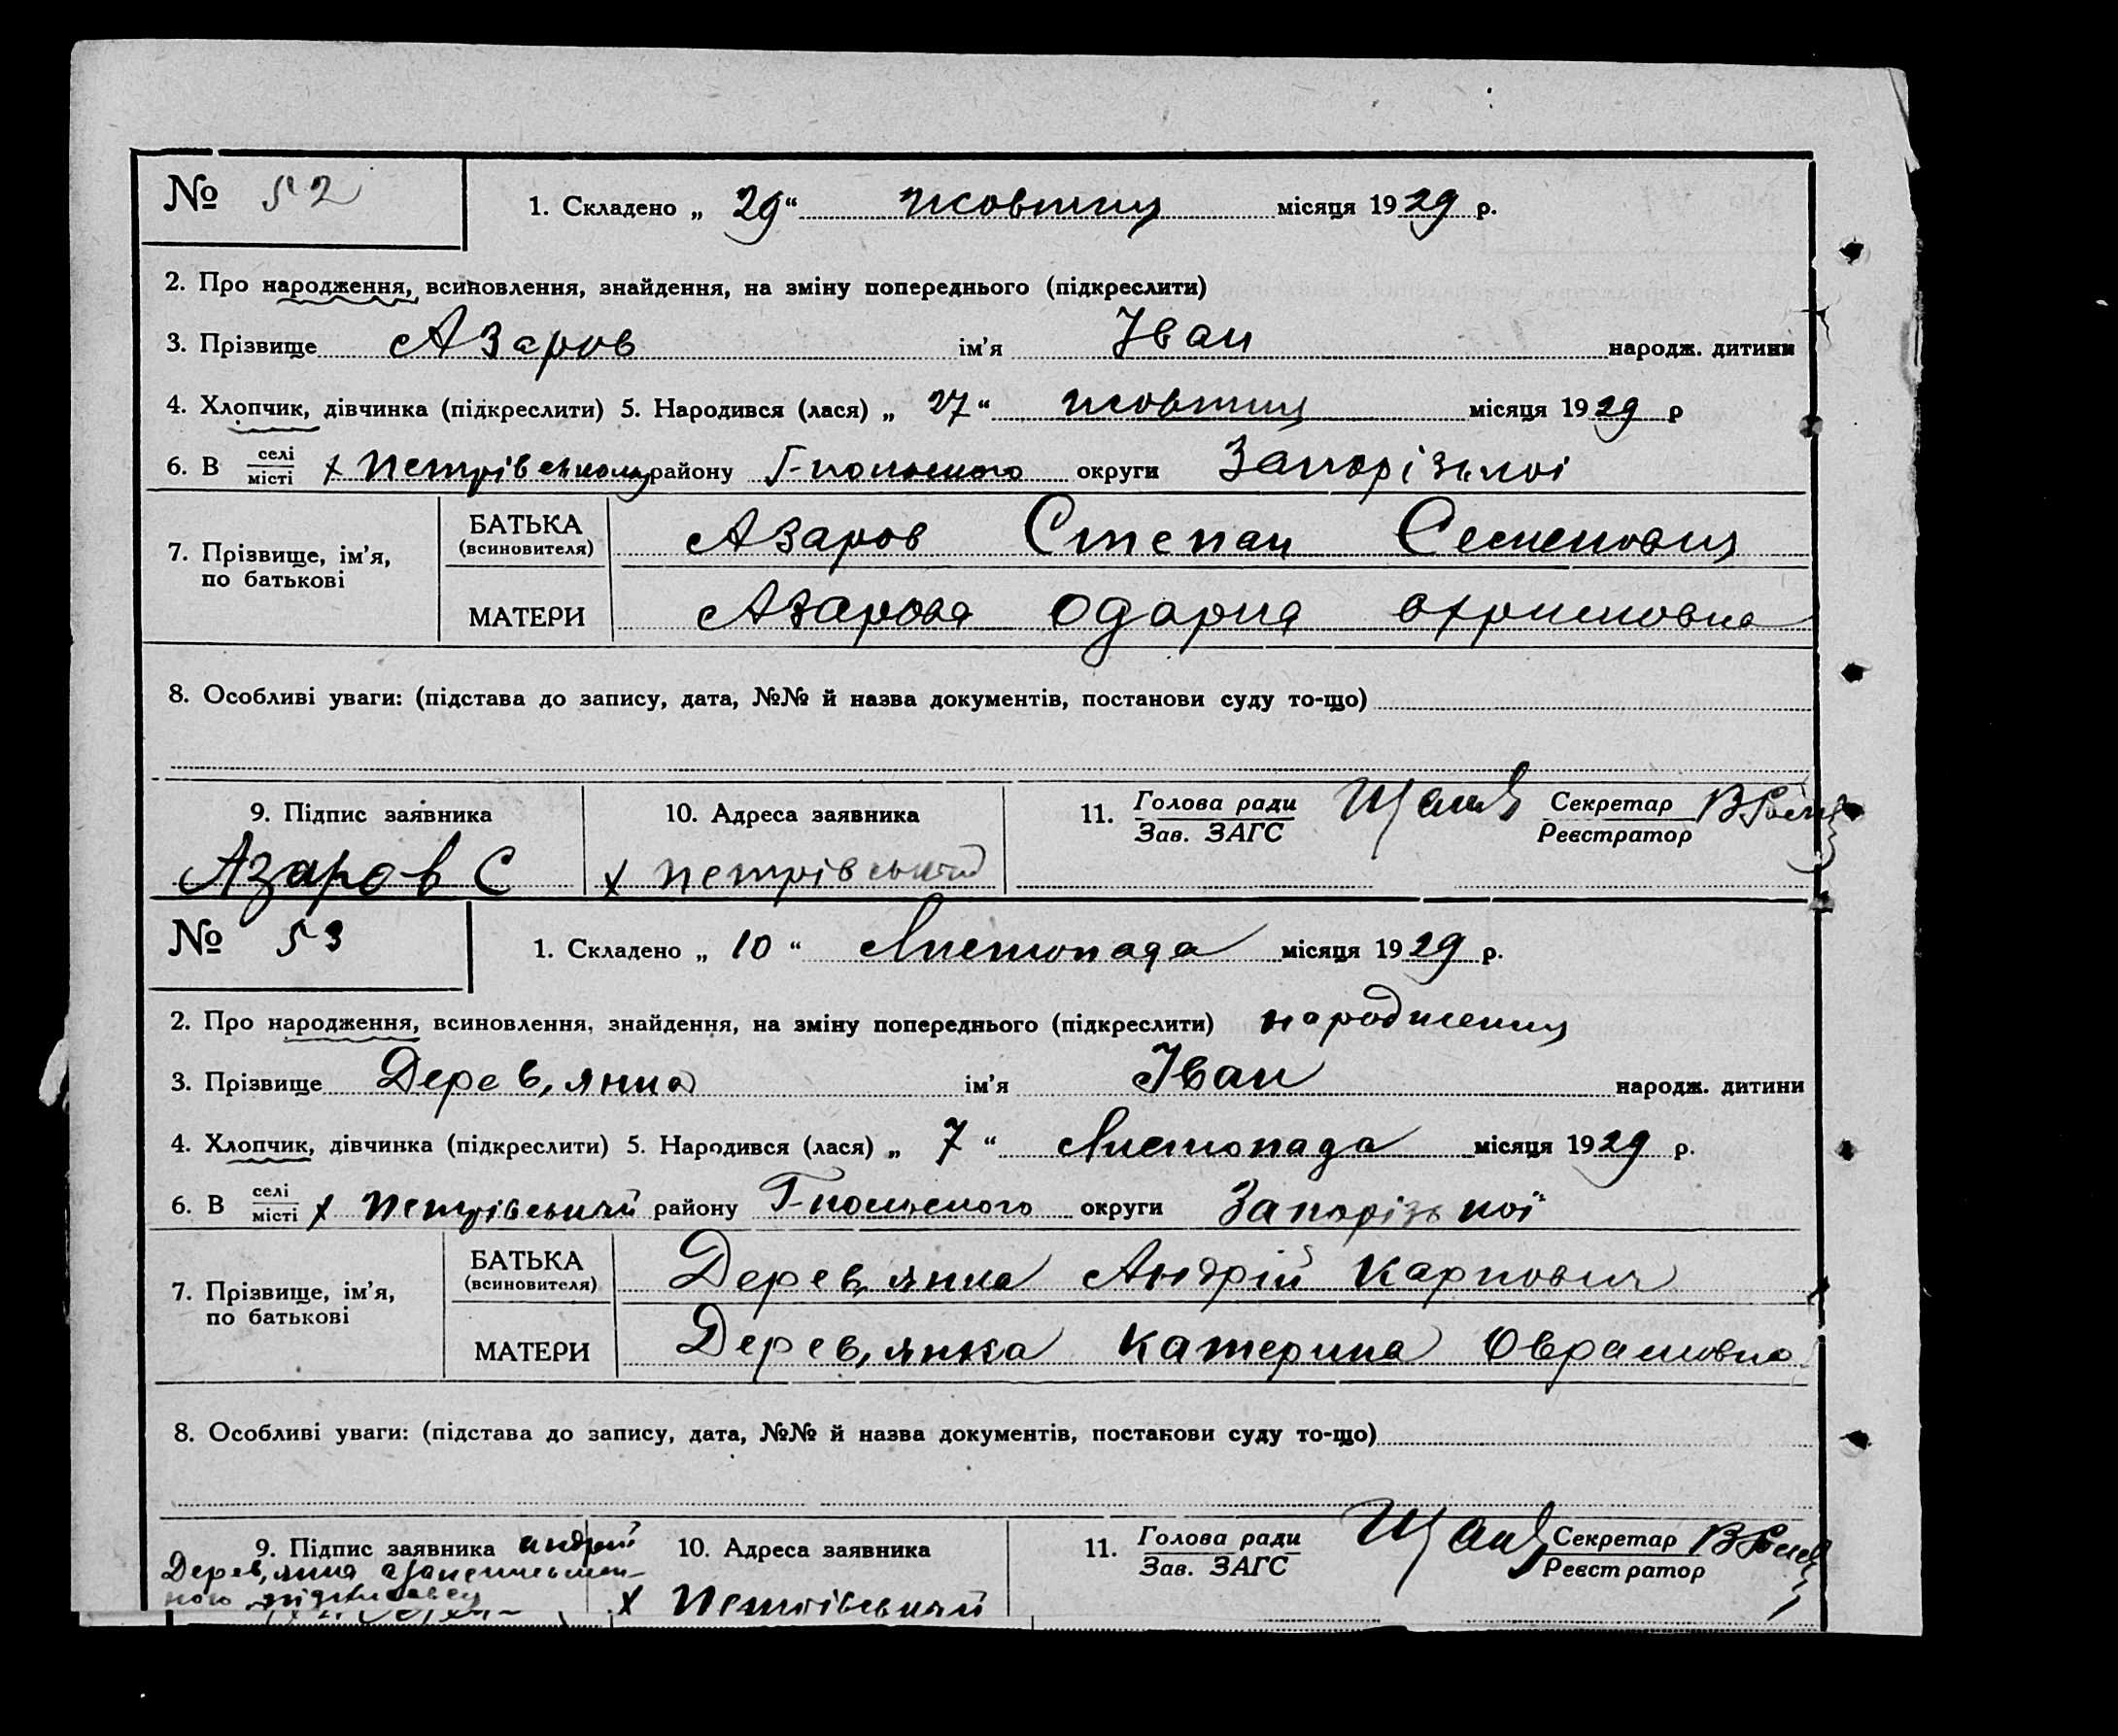 № 52
1. Складено „ 29 “ жовтня місяця 1929 р.
2. Про народження, всиновлення, знайдення, на зміну попереднього (підкреслити)
3. Прізвище Азаров ім’я Іван народж. дитини
4. Хлопчик, дівчинка (підкреслити) 5. Народився (лася) „ 27 “ жовтня місяця 1929 р
6. В селі місті х Петрівському району Г-польского округи Запорізькоі
7. Прізвище, ім’я, по батькові
БАТЬКА (всиновителя) Азаров Степан Семенович
МАТЕРИ Азарова Одарка
8. Особливі уваги: (підстава до запису, дата, №№ й назва документів, постанови суду то-що)
9. Підпис заявника 10. Адреса заявника 11. Голова ради Зав. ЗАГС Секретар Реєстратор
Азаров С х Петрівський
№ 53
1. Складено „ 10 “ Листопада місяця 1929 р.
2. Про народження, всиновлення, знайдення, на зміну попереднього (підкреслити) народження
3. Прізвище Дерев,янка ім’я Іван народж. дитини
4. Хлопчик, дівчинка (підкреслити) 5. Народився (лася) „ 7 “ Листопада місяця 1929 р.
6. В селі місті х Петрівський району Г-польського округи Запорізької
7. Прізвище, ім’я, по батькові
БАТЬКА (всиновителя) Дерев,янка Андрій Карпович
МАТЕРИ Дерев,янка Катерина Оврамовна
8. Особливі уваги: (підстава до запису, дата, №№ й назва документів, постанови суду то-що)
9. Підпис заявника Андрій 10. Адреса заявника 11. Голова ради Зав. ЗАГС Секретар Реєстратор
Дерев,янка
х Петрівський